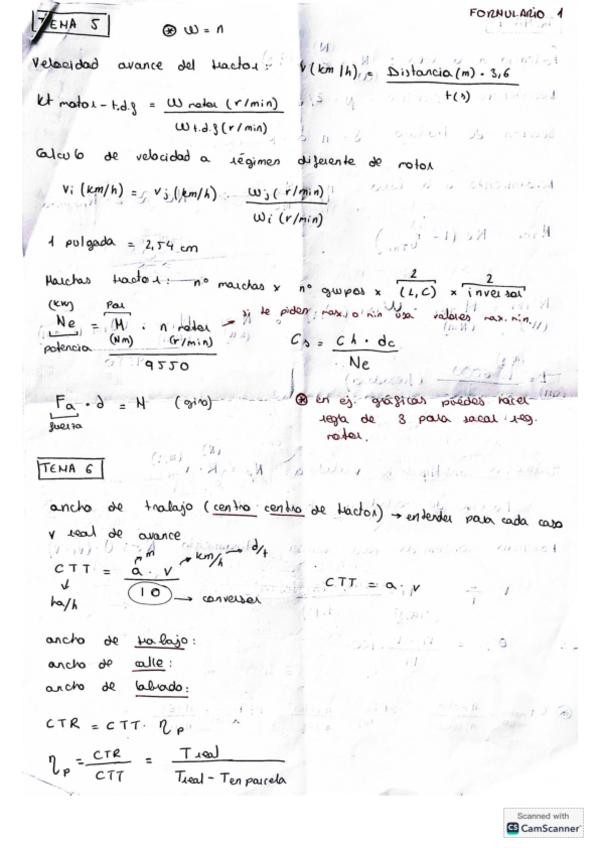 FORMULARIO 1
TEMA 5
⊛ W = n
Velocidad avance del tractor: V (km/h) = Distancia (m) · 3,6 / t (s)
kt motor - t.d.f = W motor (r/min) / W t.d.f (r/min)
Calculo de velocidad a régimen diferente de motor
Vi (km/h) = Vj (km/h) · Wj (r/min) / Wi (r/min)
1 pulgada = 2,54 cm
Marchas tractor: nº marchas x nº grupos x 2 (L, C) x 2 inversor
(kW) Ne potencia = Par M (Nm) · n motor (r/min) / 9550 → si te piden max. o min usa valores max. min.
Cs = Ch · dc / Ne
Fa · d = M (giro)
fuerza
⊛ en ej. gráficas puedes hacer
regla de 3 para sacar reg.
motor.
TEMA 6
ancho de trabajo (centro centro de tractor) → entender para cada caso
v real de avance
CTT = a · v / 10 → conversor
m → km/h → d/t
ha/h
CTT = a · v
ancho de trabajo:
ancho de calle:
ancho de labrado:
CTR = CTT · ηp
ηp = CTR / CTT = T real / Treal - Ten parcela
Scanned with
CS CamScanner